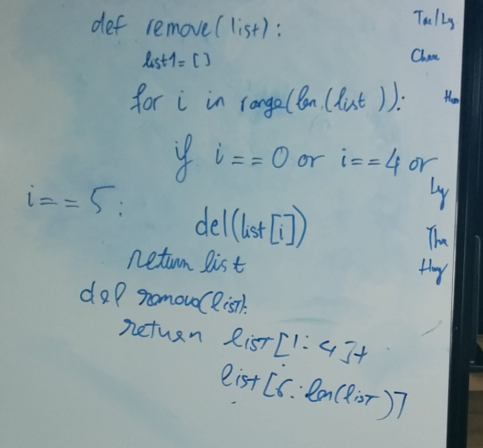 def remove(list):
list1=[]
for i in range(len(list)):
if i==0 or i==4 or
i==5:
del(list[i])
return list
def remove(list):
return list[1:4]+
list[6:len(list)]
Ly
Tha